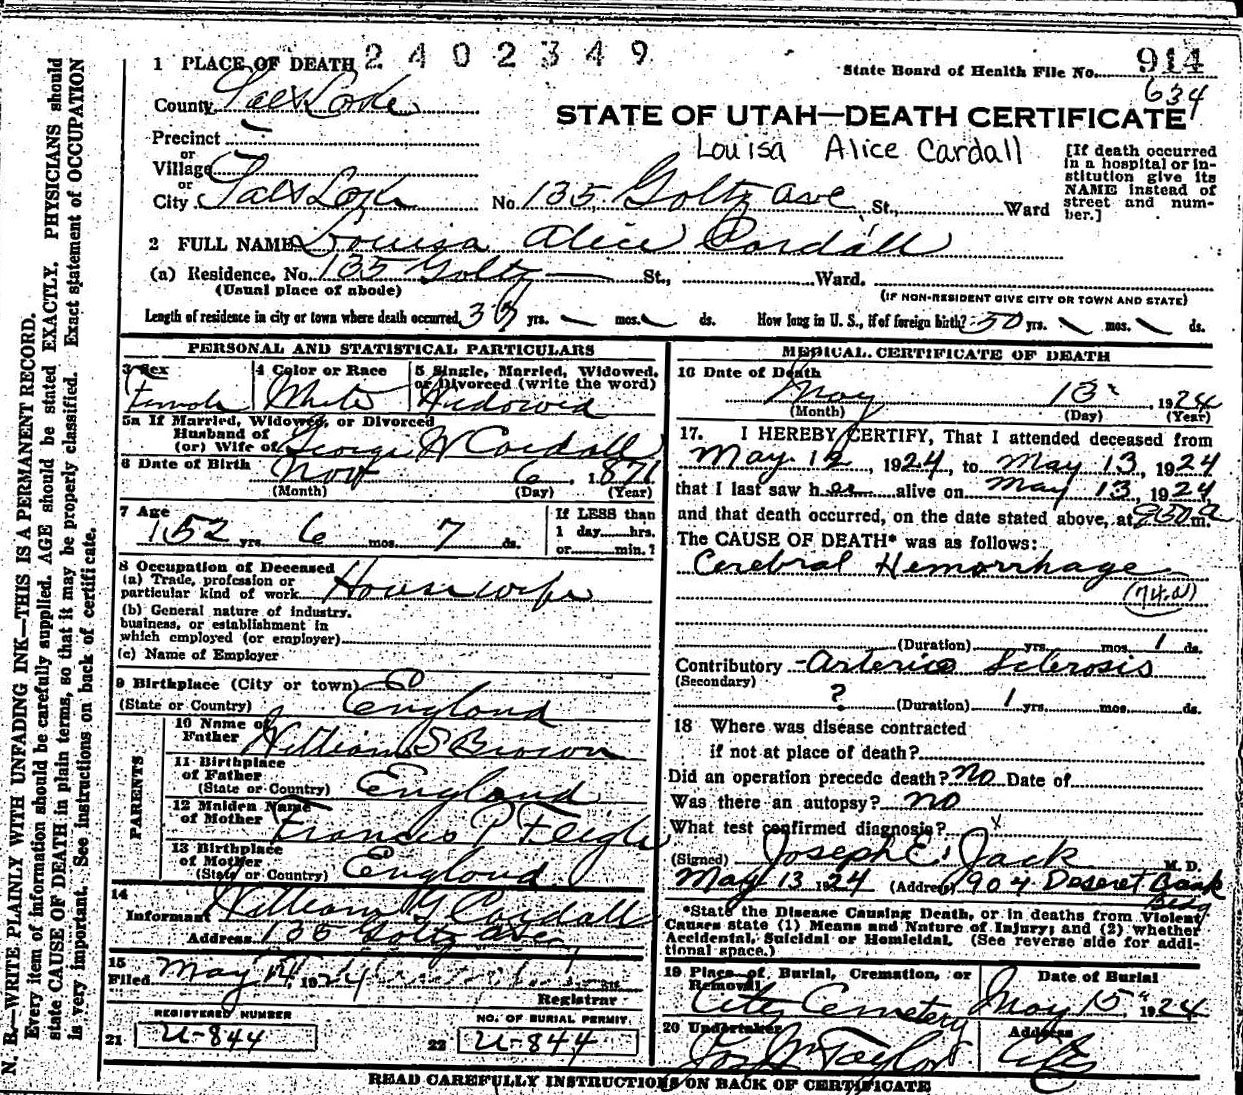 2402349
1 PLACE OF DEATH
State Board of Health File No. 914
634
County Salt Lake
STATE OF UTAH—DEATH CERTIFICATE
Louisa Alice Cardall
Precinct
or
Village
or
City Salt Lake No. 135 Goltz Ave St., Ward
[If death occurred in a hospital or institution give its NAME instead of street and number.]
2 FULL NAME Louisa Alice Cardall
(a) Residence. No. 135 Goltz St., Ward.
(Usual place of abode)
(IF NON-RESIDENT GIVE CITY OR TOWN AND STATE)
Length of residence in city or town where death occurred yrs. mos. ds. How long in U. S., if of foreign birth? 50 yrs. mos. ds.
PERSONAL AND STATISTICAL PARTICULARS
3 Sex
Female
4 Color or Race
White
5 Single, Married, Widowed, or Divorced (write the word)
Widowed
5a If Married, Widowed, or Divorced
Husband of
(or) Wife of George W Cardall
6 Date of Birth Nov 6, 1871
(Month) (Day) (Year)
7 Age
52 yrs. 6 mos. 7 ds.
If LESS than
1 day hrs.
or min.?
8 Occupation of Deceased
(a) Trade, profession or
particular kind of work Housewife
(b) General nature of industry,
business, or establishment in
which employed (or employer)
(c) Name of Employer
9 Birthplace (City or town)
(State or Country) England
PARENTS
10 Name of
Father William S Brown
11 Birthplace
of Father
(State or Country) England
12 Maiden Name
of Mother Francis P
13 Birthplace
of Mother
(State or Country) England
14
Informant William G Cardall
Address 135 Goltz Ave
15
Filed May 14, 1924
Registrar
REGISTERED NUMBER
21 U-844
NO. OF BURIAL PERMIT
22 U-844
MEDICAL CERTIFICATE OF DEATH
16 Date of Death
May 13, 1924
(Month) (Day) (Year)
17. I HEREBY CERTIFY, That I attended deceased from
May 12, 1924, to May 13, 1924
that I last saw her alive on May 13, 1924,
and that death occurred, on the date stated above, at 950 a m.
The CAUSE OF DEATH* was as follows:
Cerebral Hemorrhage
(Duration) yrs. mos. 1 ds.
Contributory Arterio Sclerosis
(Secondary)
? (Duration) 1 yrs. mos. ds.
18 Where was disease contracted
if not at place of death?
Did an operation precede death? no Date of
Was there an autopsy? no
What test confirmed diagnosis? x
(Signed) Joseph E. Jack M. D.
May 13 1924 (Address) 904 Deseret Bank Bldg
*State the Disease Causing Death, or in deaths from Violent
Causes state (1) Means and Nature of Injury; and (2) whether
Accidental, Suicidal or Homicidal. (See reverse side for addi-
tional space.)
19 Place of Burial, Cremation, or
Removal
City Cemetery
Date of Burial
May 15, 1924
20 Undertaker
Jos Wm Taylor
Address
City
READ CAREFULLY INSTRUCTIONS ON BACK OF CERTIFICATE
N. B.—WRITE PLAINLY WITH UNFADING INK—THIS IS A PERMANENT RECORD.
Every item of information should be carefully supplied. AGE should be stated EXACTLY. PHYSICIANS should
state CAUSE OF DEATH in plain terms, so that it may be properly classified. Exact statement of OCCUPATION
is very important. See instructions on back of certificate.